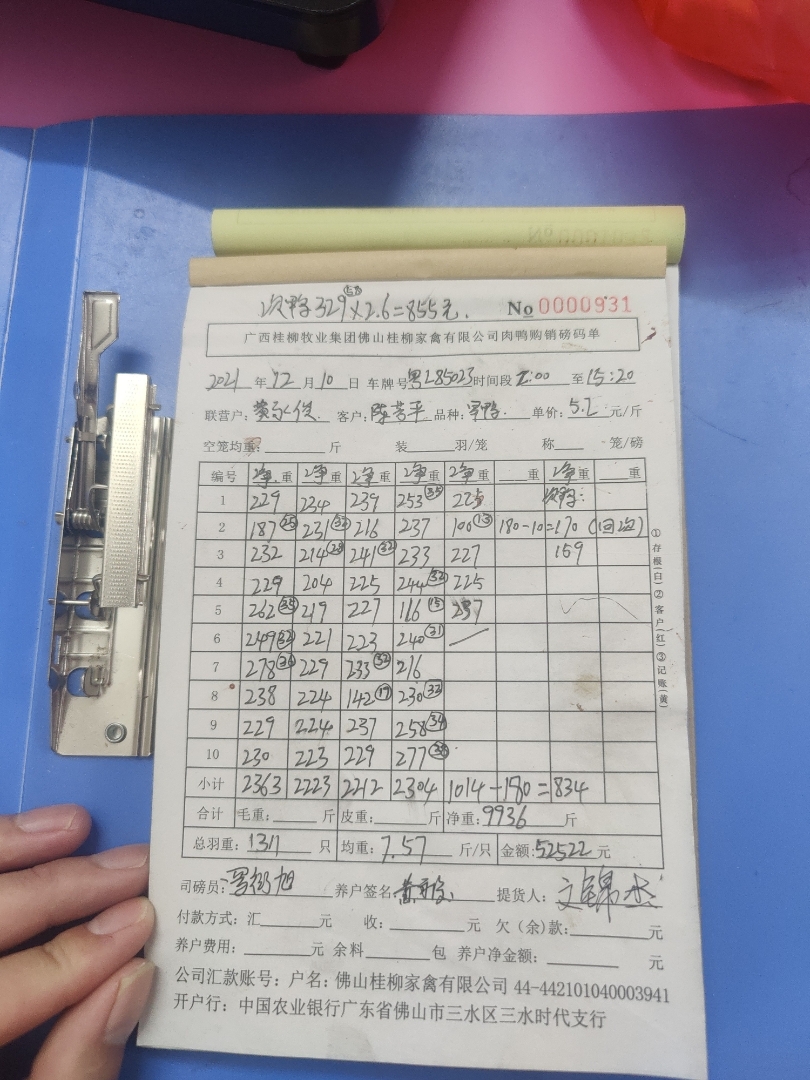 次鸭329(58)×2.6=855元.
No 0000931
广西桂柳牧业集团佛山桂柳家禽有限公司肉鸭购销磅码单
2021年12月10日 车牌号粤L85023时间段 :00 至15:20
联营户: 客户:陈芳平 品种: 单价:5.2元/斤
空笼均重: 斤 装 羽/笼 称 笼/磅
编号 净重 净重 净重 净重 净重 重 净重 重
1 229 234 239 253(35) 225 次鸭:
2 187(25) 231(32) 216 237 100(13) 180-10=170 (回)
3 232 214(28) 241(32) 233 227 159
4 229 204 225 244(32) 225
5 262(35) 219 227 116(15) 237
6 249(32) 221 223 240(31)
7 278(36) 229 233(32) 216
8 238 224 142(19) 230(32)
9 229 224 237 258(34)
10 230 223 229 277(38)
小计 2363 2223 2212 2304 1014-180=834
合计 毛重: 斤 皮重: 斤 净重:9936斤
总羽重:1311只 均重:7.57斤/只 金额:52522元
司磅员: 旭 养户签名: 提货人:
付款方式:汇 元 收: 元 欠(余)款: 元
养户费用: 元 余料 包 养户净金额: 元
公司汇款账号:户名:佛山桂柳家禽有限公司 44-442101040003941
开户行:中国农业银行广东省佛山市三水区三水时代支行
①存根(白)②客户(红)③记账(黄)